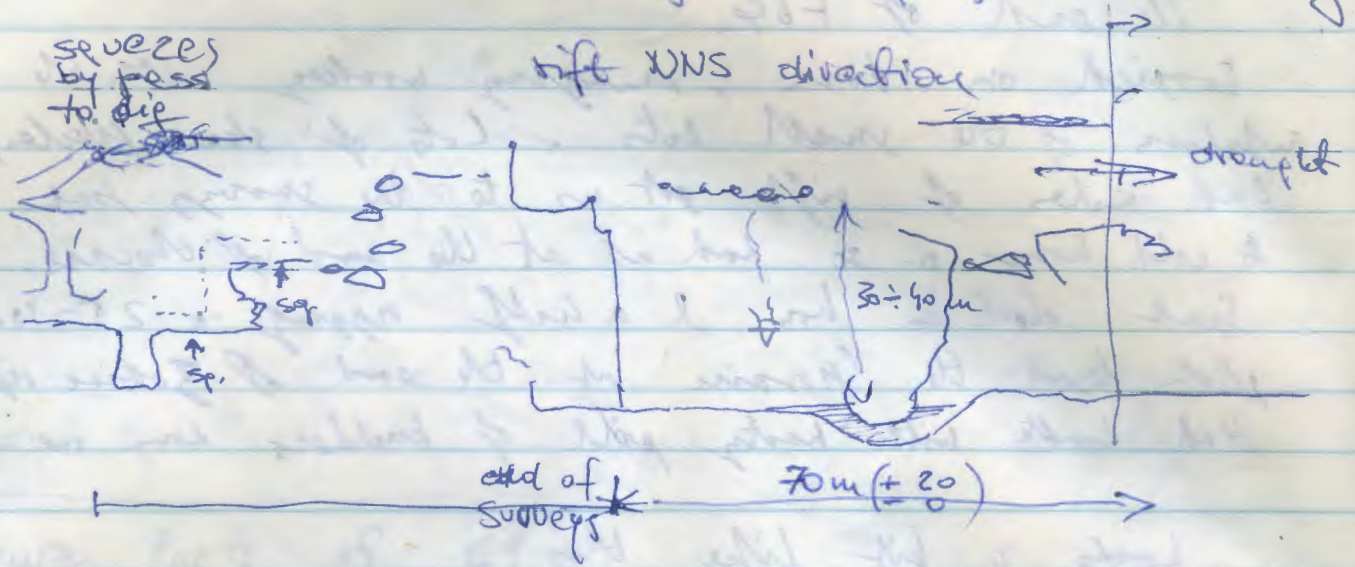 squezes
by pass
to dig
rift NNS direction
draught
sq.
sq.
30÷40 m
end of
surveys
70m (+ 20
- 0)